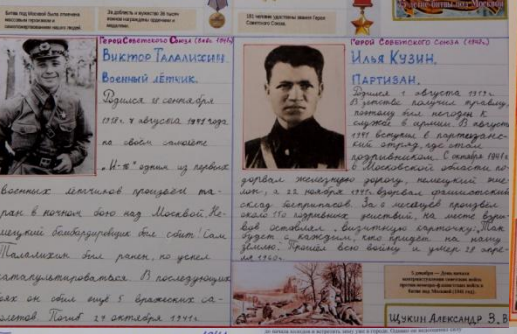 Битва под Москвой была отмечена
массовым героизмом и
самопожертвованием наших людей.
За доблесть и мужество 36 тысяч
воинов награждены орденами и
медалями.
181 человек удостоены звания Героя
Советского Союза.
летие битвы под Москвой
Герой Советского Союза
Виктор Талалихин.
Военный лётчик.
Родился 18 сентября
1918 г. 7 августа 1941 года
на своём самолёте
"И-16" одним из первых
военных лётчиков произвёл та-
ран в ночном бою над Москвой. Не-
мецкий бомбардировщик был сбит! Сам
Талалихин был ранен, но успел
катапультироваться. В последующих
боях он сбил ещё 5 вражеских са-
молётов. Погиб 27 октября 1941 г.
Герой Советского Союза
Илья Кузин.
Партизан.
Родился
В детстве получил травму,
поэтому был негоден к
службе в армии. В августе
1941 вступил в партизанс-
кий отряд, где стал
подрывником. С октября 1941 г.
в Московской области по-
дорвал железную дорогу, немецкий эше-
лон, а 22 ноября 1941 г. взорвал фашистский
склад боеприпасов. За 6 месяцев произвёл
около 150 подрывных действий, на месте взры-
вов оставлял "визитную карточку": Так
будет с каждым, кто придёт на нашу
землю. Прошёл всю войну и умер 28 апре-
ля 1960 г.
5 декабря — День начала
контрнаступления советских войск
против немецко-фашистских войск в
битве под Москвой (1941 год).
Щукин Александр 3. В